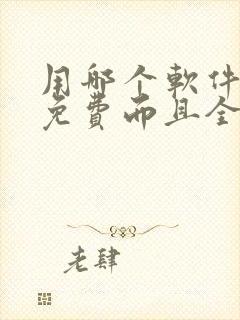 用哪个软件
免费而且全
老肆